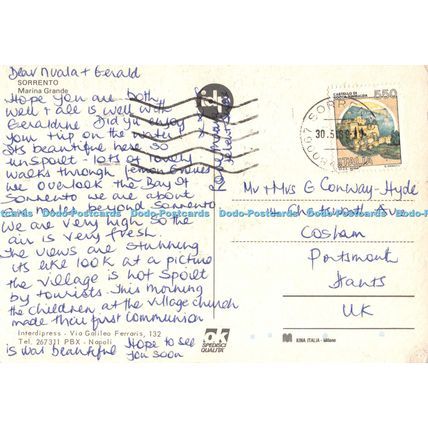 SORRENTO
Marina Grande
Dear Nuala + Gerald
Hope you are both
well + all is well with
Geraldine. Did you enjoy
your trip on the water
Its beautiful here so
unspoilt - lots of lovely
walks through lemon groves
we overlook the Bay of
Sorrento we are about
mile beyond Sorrento
We are very high so the
air is very fresh.
The views are stunning
its like look at a picture
the village is not spoilt
by tourists This morning
the children at the village church
made their first communion
is was beautiful
Hope to see
you soon
Interdipress - Via Galileo Ferraris, 132
Tel. 267311 PBX - Napoli
OK
SPEDISCI
QUALITÀ
CASTELLO DI
ROCCA SINIBALDA
550
ITALIA
30.5
Mr + Mrs G Conway-Hyde
Ave
Cosham
Portsmouth
Hants
UK
KINA ITALIA - Milano
Dodo-Postcards Dodo-Postcards Dodo-Postcards Dodo-Postcards Dodo-Postcards